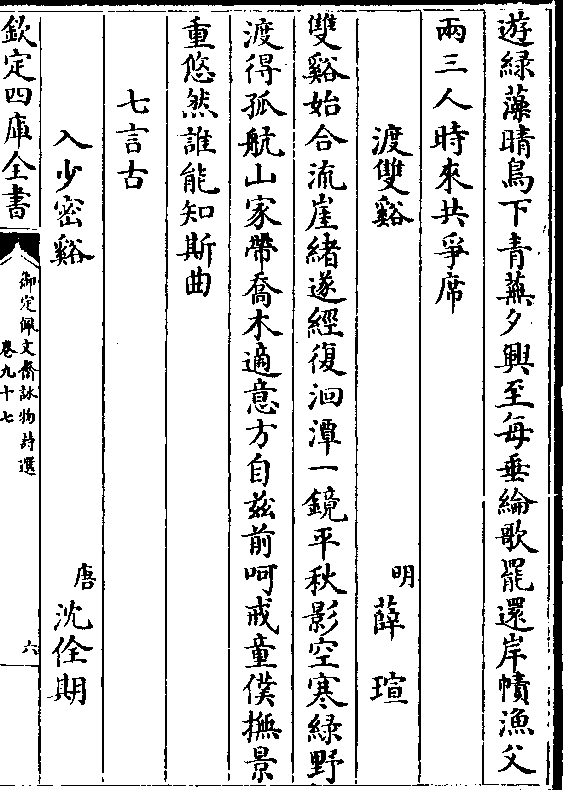 遊綠藻晴鳥下青蕪夕興至每垂綸歌罷還岸幘漁父
兩三人時來共爭席
渡雙谿
明 薛瑄
雙谿始合流崖緒遂經復洄潭一鏡平秋影空寒綠野
渡得孤航山家帶喬木適意方自茲前呵戒童僕撫景
重悠然誰能知斯曲
七言古
入少密谿
唐 沈佺期
欽定四庫全書
御定佩文齋詠物詩選
卷九十七
六